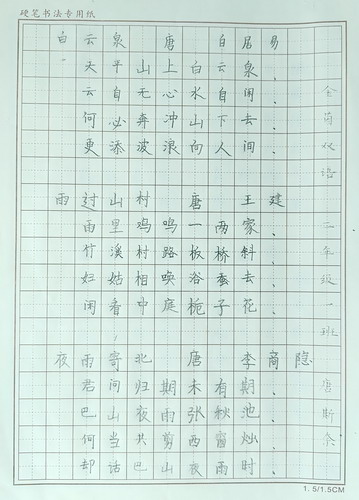 硬笔书法专用纸
白云泉 唐 白居易
天平山上白云泉、
云自无心水自闲、
何必奔冲山下去、
更添波浪向人间、
雨过山村 唐 王建
雨里鸡鸣一两家、
竹溪村路板桥斜、
妇姑相唤浴蚕去、
闲看中庭栀子花、
夜雨寄北 唐 李商隐
君问归期未有期、
巴山夜雨张秋池、
何当共剪西
却话巴山夜雨时、
双语
年级一班
唐斯
1.5/1.5CM